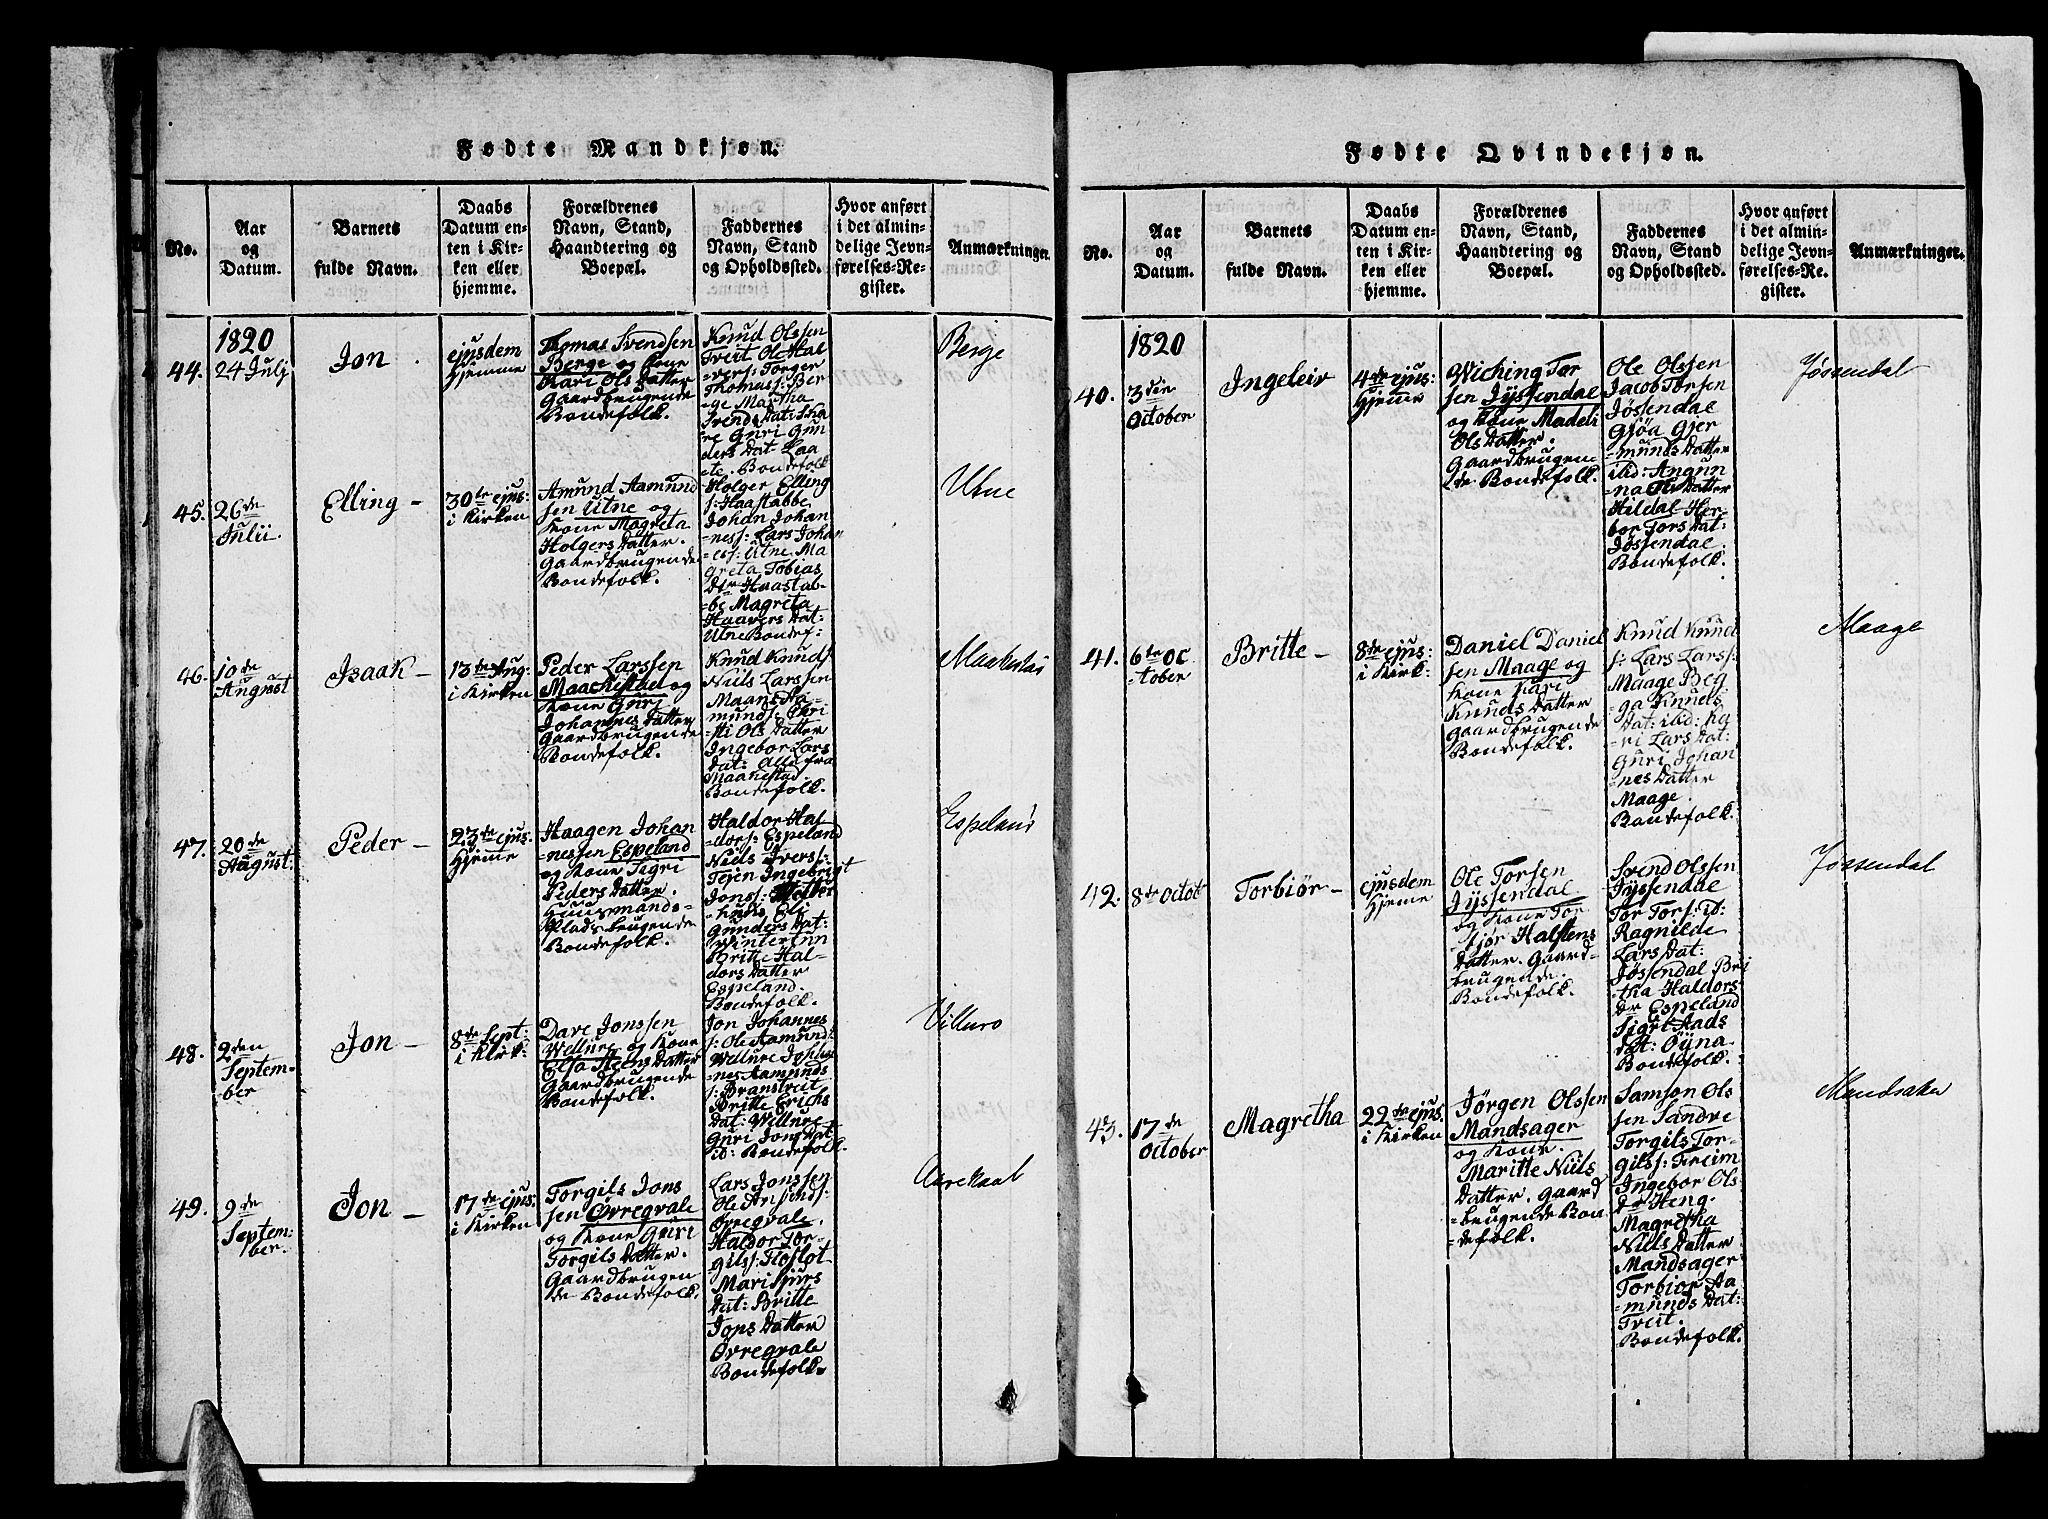 Fødte Mandkjøn.
No.
Aar
og
Datum.
Barnets
fulde Navn.
Daabs
Datum en-
ten i Kir-
ken eller
hjemme.
Forældrenes
Navn, Stand,
Haandtering og
Boepæl.
Faddernes
Navn, Stand
og Opholdssted.
Hvor anført
i det almin-
delige Jevn-
førelses-Re-
gister.
Anmærkninger.
1820
44. 24 Julj
Jon
ejusdem
Hjemme
Thomas Svendsen
Berge og Kone
Kari Ols Datter
Gaardbrugende
Bondefolk.
Knud Olssen
Freit Ole Hal
=vers: Torger
Thomass: Ber
=ge Martha
Svends Dat:
Guri Gun
ders Dat
Bondefolk
Berge
45. 26de
Julii.
Elling -
30te ejus:
i Kirken
Amund Aamund
sen Utne og
Kone Magreta
Holgers Datter.
Gaardbrugende
Bondefolk.
Holger Elling
s: Haastabbe
Johan Johan
=ness: Lars Johan
ess: Utne Ma
greta Tobias
Dtr Haastab-
=be Magreta
Haavers Dat:
Utne Bondef:
Utne
46. 10de
August
Isaak -
13de Aug:
i Kirken
Peder Larssen
Maachestad og
Kone Gurj
Johannes Datter
Gaardbrugende
Bondefolk.
Knud Knuds
Niils Larssen
Maans Aa-
munds:
Ols Datter
Ingebor Lars
Dat: Alle fra
Maakestad.
Bondefolk.
47. 20de
August.
Peder -
23de ejus:
Hjeme
Haagen Johan
=nessen Espeland
og Kone Sigri
Peders Datter.
Huusmands-
Pladsbrugende
Bondefolk.
Haldor Hal
dors: Espeland
Niels Ivers:
Tejen Ingebrigt
Jons:
Eli
Gunders Dat:
Britte Hal-
dors Datter
Espeland.
Bondefolk.
Espeland
48. 2den
Septem-
ber
Jon -
8de Sept:
i Kirk:
Dave Jonssen
Wellure og Kone
Elsa Steens Datter
Gaardbrugende
Bondefolk.
Jon Johannes
s: Ole Aamund
Wellure Johan
nes Aamunds
s: Branstveit
Britte Erichs
Dat: Wellure
Guri Jons Dat
ib: Bondefolk.
Villuro
49. 9de
Septem-
ber.
Jon -
17de ejus:
i Kirken
Torgils Jons
sen Ovregvale
og Kone Guri
Torgils Datter.
Gaardbrugen
de Bondefolk.
Lars Jonssen
Ole
Ovregvale.
Haldor Tor-
gilss:
Mari Sjurs
Dat: Britte
Jons Datter
Ovregvale
Bondefolk.
Fødte Qvindekjøn.
No.
Aar
og
Datum.
Barnets
fulde Navn.
Daabs
Datum en-
ten i Kir-
ken eller
hjemme.
Forældrenes
Navn, Stand,
Haandtering og
Boepæl.
Faddernes
Navn, Stand
og Opholdssted.
Hvor anført
i det almin-
delige Jevn-
førelses-Re-
gister.
Anmærkninger.
1820
40. 3die
October
Ingeleiv
4de ejus:
Hjeme
Wiching Tor
sen Jyssendal
og Kone Madeli
Ols Datter.
Gaardbrugen
de Bondefolk.
Ole Olssen
Jacob Torsen
Jossendal
Gjøa Gjer
=munds Datter
ibd: Angun
=na Ols Datter
Hildal Her-
bor Tors Dat:
Jøssendal.
Bondefolk.
Jøssendal
41. 6te Oc
=tober
Britte -
8de ejus:
i Kirk:
Daniel Daniel
sen Maage og
Kone Kari
Knuds Datter
Gaardbrugende
Bondefolk.
Knud Knud
s: Lars Lars:
Maage Beg
ga Knuds
Dat: ibd: Ka
=ri Lars Dat:
Guri Johan
=nes Datter
Maage.
Bondefolk.
Maage
42. 8de Octob
Torbiør -
ejusdem
Hjeme
Ole Torsen
Jyssendal
og Kone Tor
Halstens
Datter. Gaard-
brugende.
Bondefolk.
Svend Olssen
Jyssendal
Tor Tors: ib:
Ragnilde
Lars Dat:
Jøssendal Bri
=tha Haldors
Dr Espeland
Sigri Aads
Dat: Oyna
Bondefolk.
Jøssendal
43. 17de
October
Magretha
22de ejus:
i Kirken
Jørgen Olssen
Mandsager
og Kone.
Maritte Niils
Datter. Gaard
=brugende Bon
=defolk.
Samson Ols
sen Sandve
Torgils Tor-
gilss: Freim
Ingebor Ols
Dr Heng.
Magretha
Niels Datter.
Mandsager
Torbior Aa
=munds Dat:
Freit.
Bondefolk.
Mandsaker